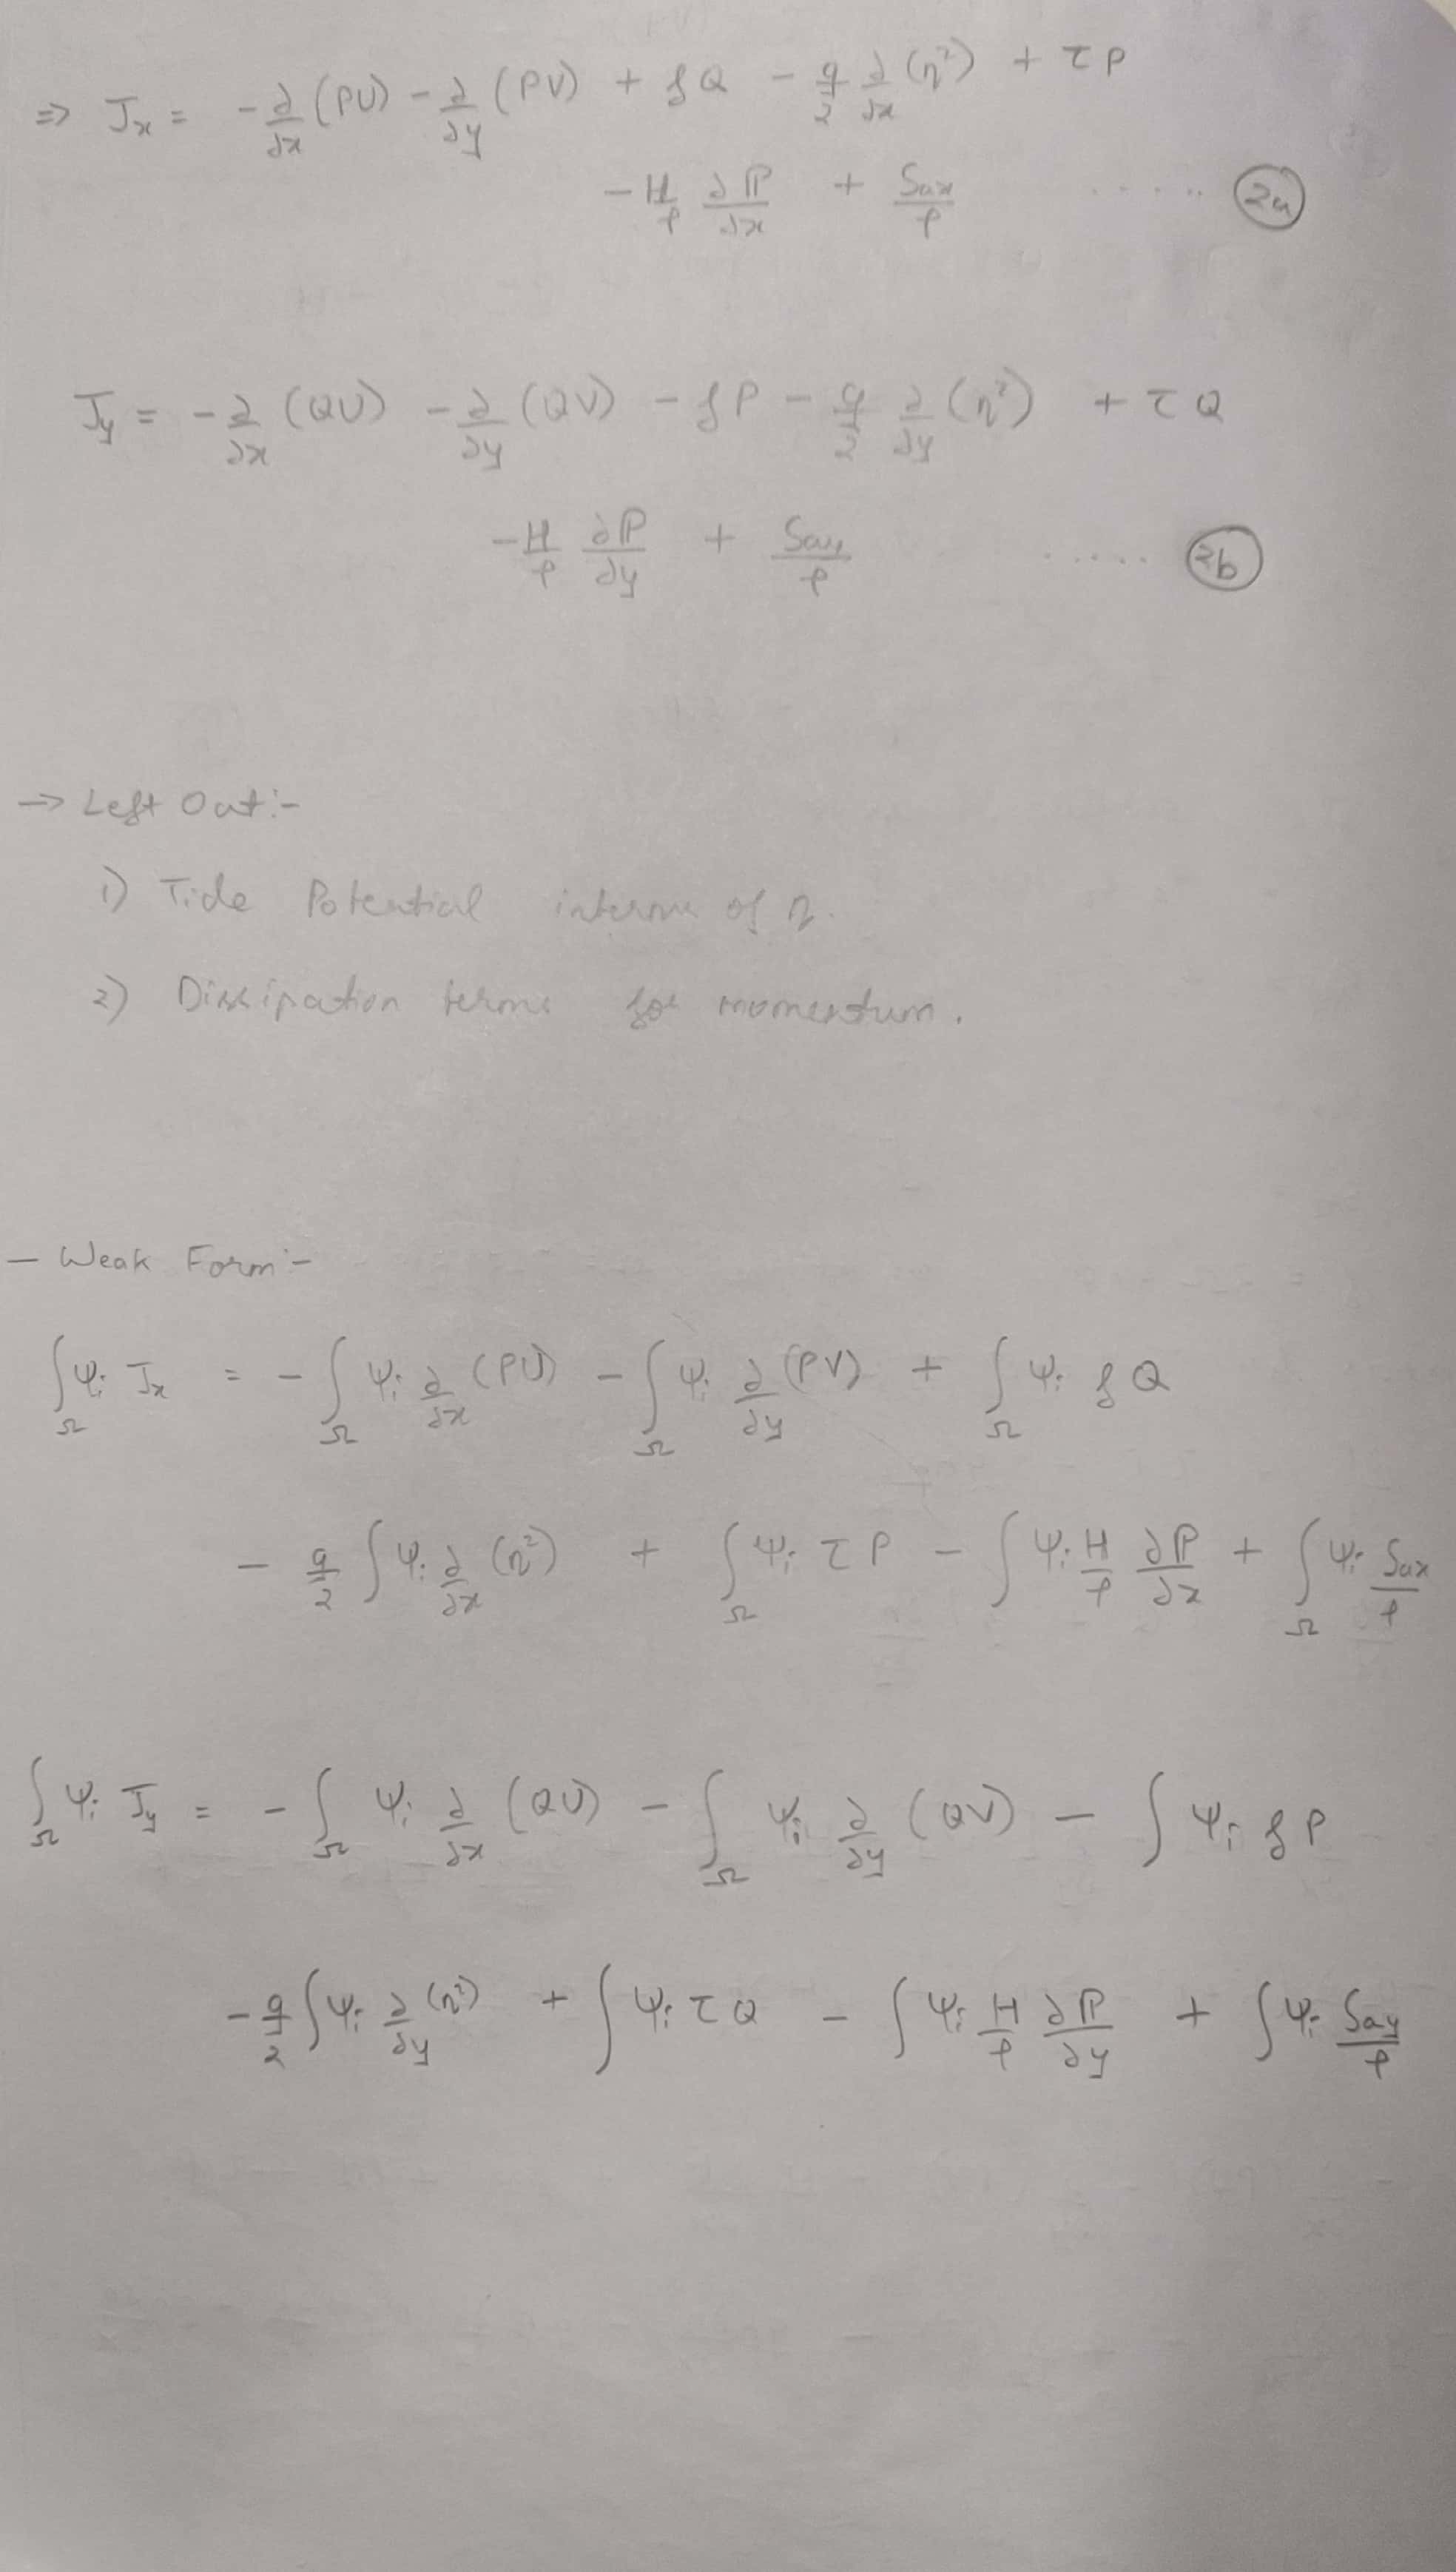 ⇒ Jx = - ∂/∂x (PU) - ∂/∂y (PV) + f Q - g/2 ∂/∂x (η²) + τ P
- H/ρ ∂ℙ/∂x + Sax/ρ ..... (2a)
Jy = - ∂/∂x (QU) - ∂/∂y (QV) - f P - g/2 ∂/∂y (η²) + τ Q
- H/ρ ∂ℙ/∂y + Say/ρ ..... (2b)
→ Left Out:-
1) Tide Potential interms of η.
2) Dissipation terms for momentum.
- Weak Form:-
∫Ω ψi Jx = - ∫Ω ψi ∂/∂x (PU) - ∫Ω ψi ∂/∂y (PV) + ∫Ω ψi f Q
- g/2 ∫ ψi ∂/∂x (η²) + ∫Ω ψi τ P - ∫ ψi H/ρ ∂ℙ/∂x + ∫Ω ψi Sax/ρ
∫Ω ψi Jy = - ∫Ω ψi ∂/∂x (QU) - ∫Ω ψi ∂/∂y (QV) - ∫ ψi f P
- g/2 ∫ ψi ∂/∂y (η²) + ∫ ψi τ Q - ∫ ψi H/ρ ∂ℙ/∂y + ∫ ψi Say/ρ